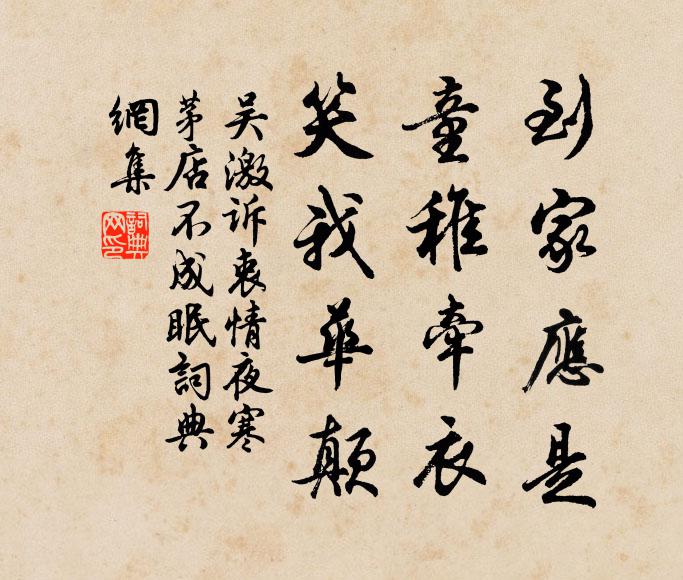 到家應是
童稚牽衣
笑我華顛
吳激訴衷情夜寒
茅店不成眠詞典
網集
詞典
网印